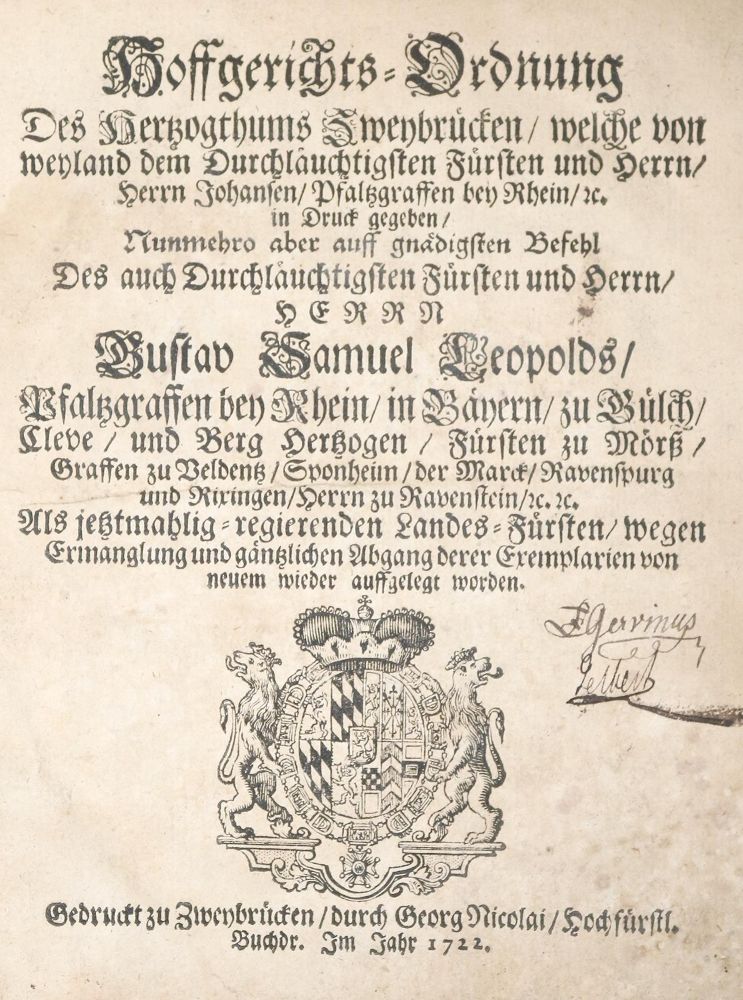 Hoffgerichts-Ordnung
Des Hertzogthums Zweybrücken/ welche von
weyland dem Durchläuchtigsten Fürsten und Herrn/
Herrn Johansen/ Pfaltzgraffen bey Rhein/ ꝛc.
in Druck gegeben/
Nunmehro aber auff gnädigsten Befehl
Des auch Durchläuchtigsten Fürsten und Herrn/
HERRN
Gustav Samuel Leopolds/
Pfaltzgraffen bey Rhein/ in Bäyern/ zu Gülch/
Cleve/ und Berg Hertzogen/ Fürsten zu Mörß/
Graffen zu Veldentz/ Sponheim/ der Marck/ Ravenspurg
und Rixingen/ Herrn zu Ravenstein/ ꝛc. ꝛc.
Als jetztmahlig-regierenden Landes-Fürsten/ wegen
Ermanglung und gäntzlichen Abgang derer Exemplarien von
neuem wieder auffgelegt worden.
Gervinus
Gedruckt zu Zweybrücken/ durch Georg Nicolai/ Hochfürstl.
Buchdr. Im Jahr 1722.